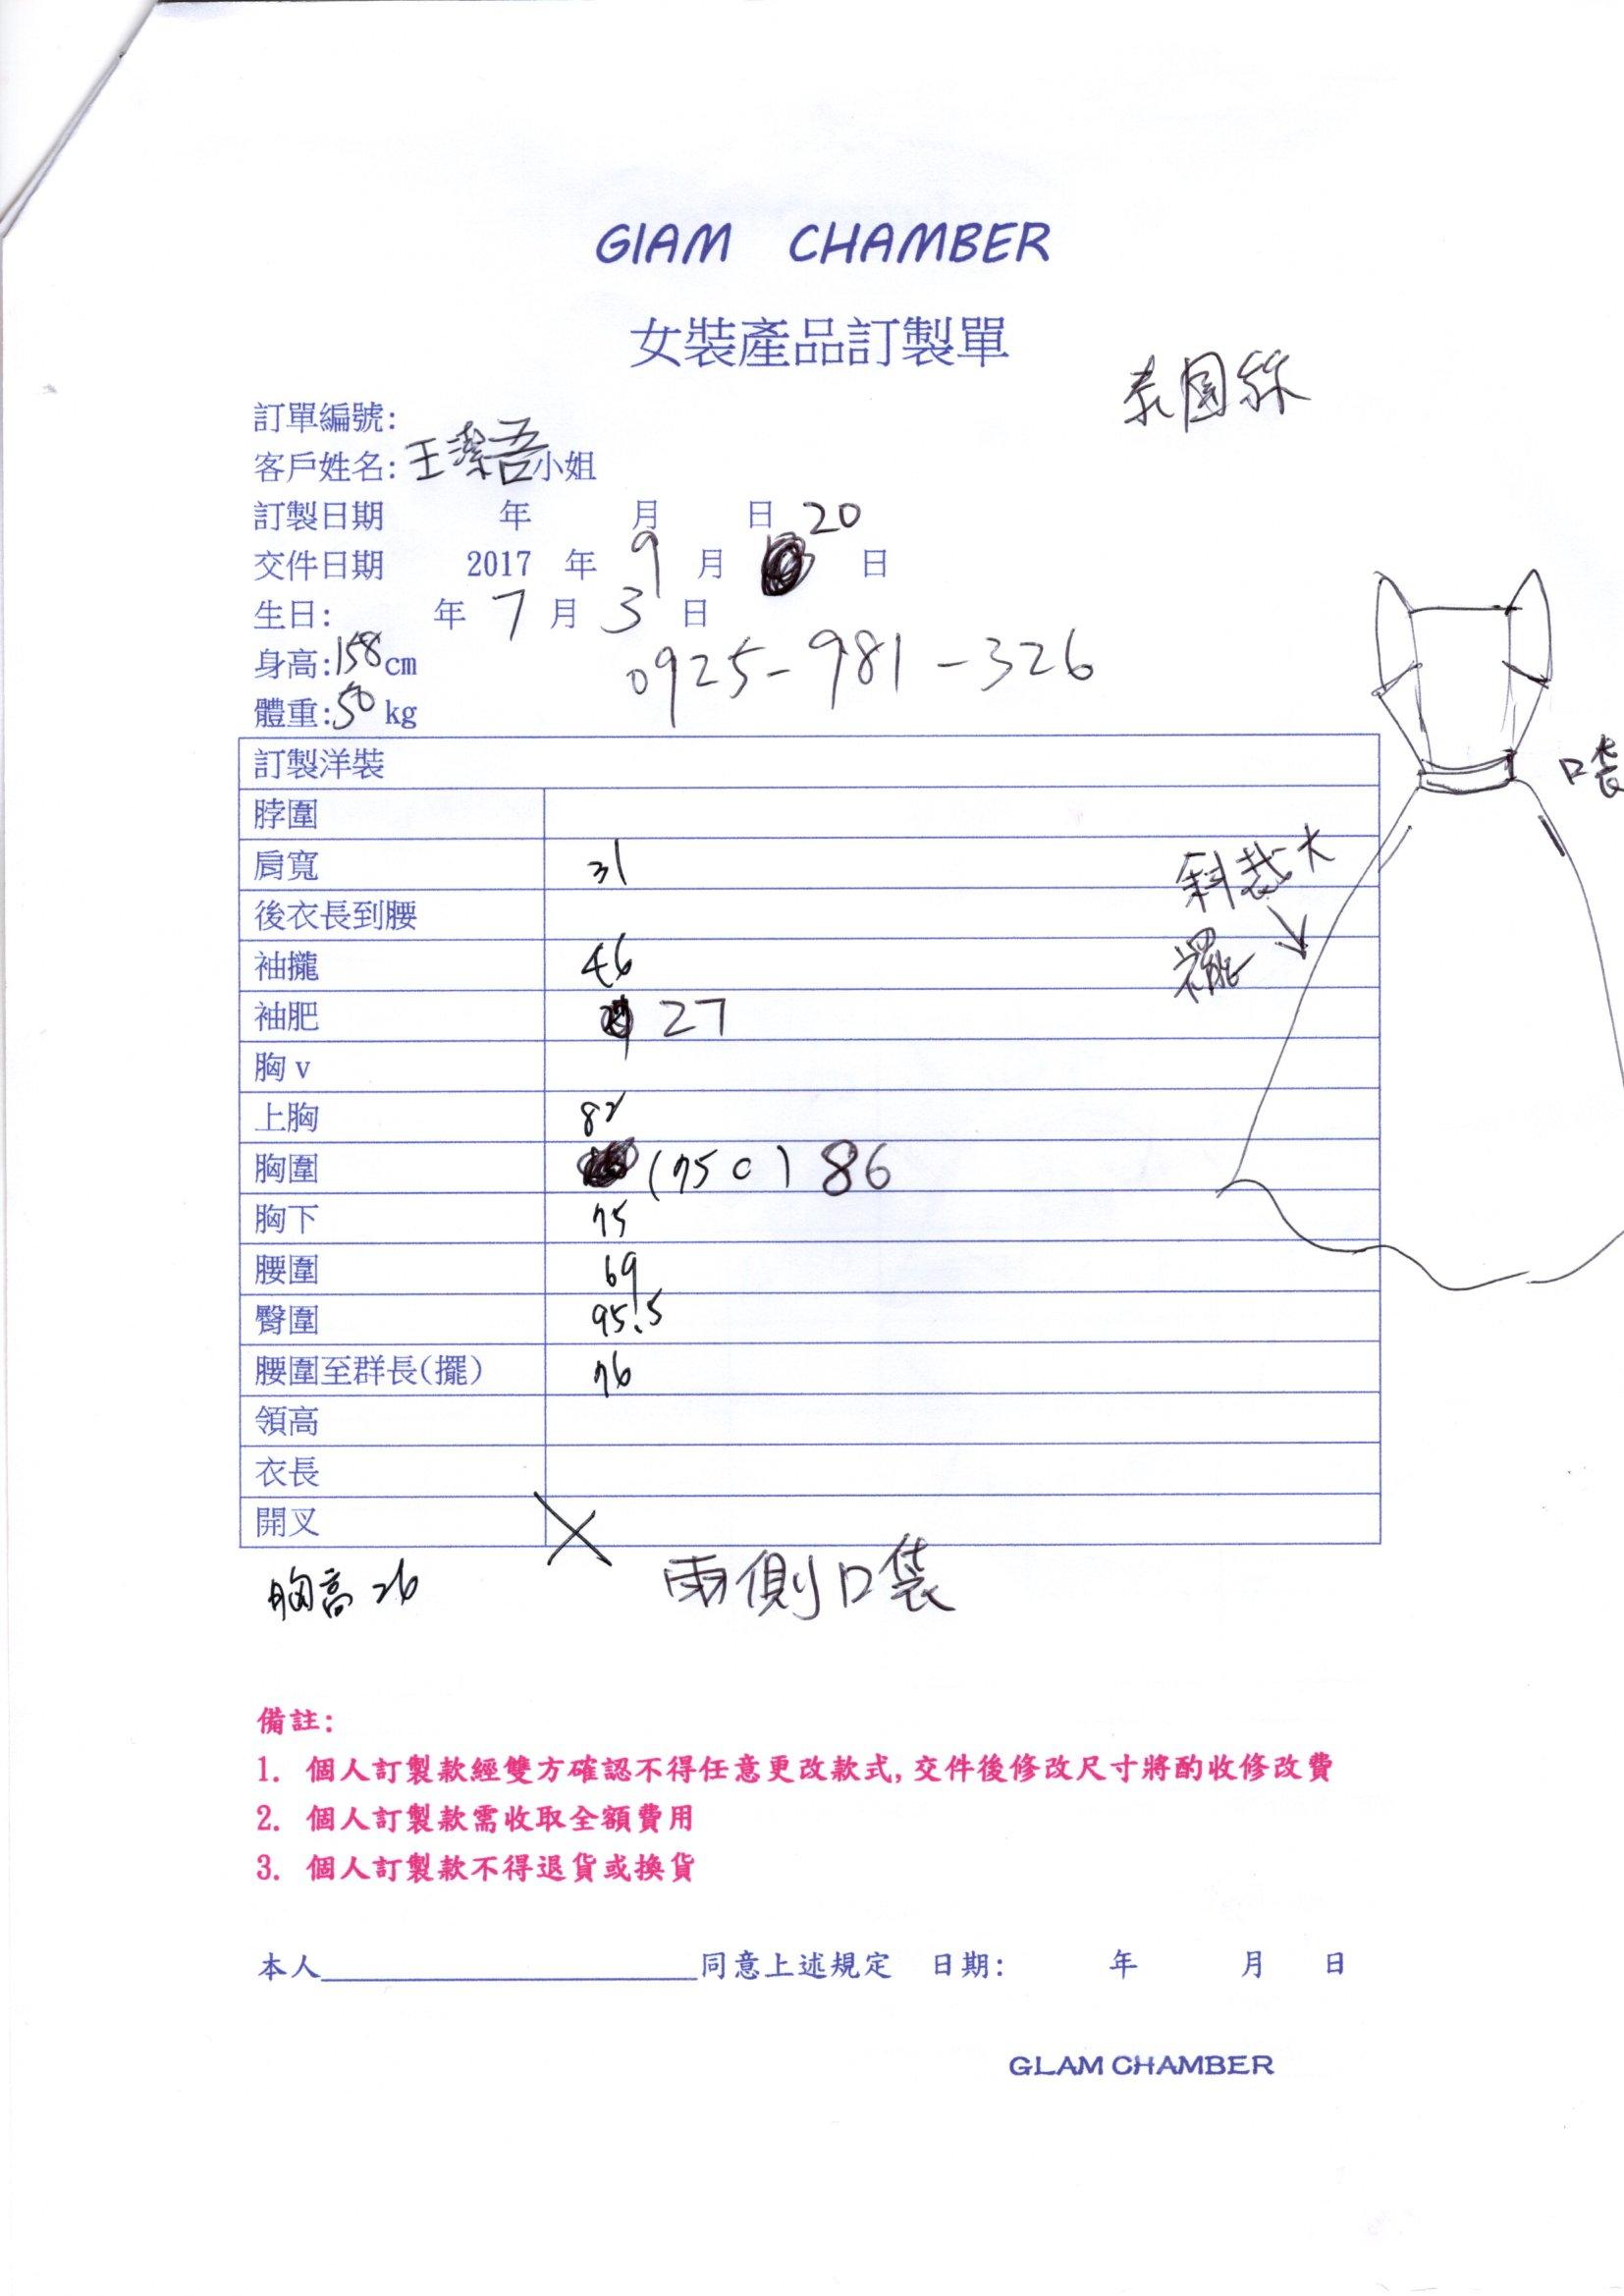 GIAM CHAMBER
女裝產品訂製單
泰国絲
訂單編號:
客戶姓名: 王潔吾小姐
訂製日期 年 月 日 20
交件日期 2017 年 9 月 日
生日: 年 7 月 3 日
身高:158cm
0925-981-326
體重:50 kg
訂製洋裝
口袋
脖圍
肩寬 31
斜裁大
後衣長到腰
袖攏 46
擺
袖肥 27
胸 v
上胸 82
胸圍 (75C) 86
胸下 75
腰圍 69
臀圍 95.5
腰圍至群長(擺) 76
領高
衣長
開叉
胸高 26 兩側口袋
備註:
1. 個人訂製款經雙方確認不得任意更改款式,交件後修改尺寸將酌收修改費
2. 個人訂製款需收取全額費用
3. 個人訂製款不得退貨或換貨
本人 同意上述規定 日期: 年 月 日
GLAM CHAMBER